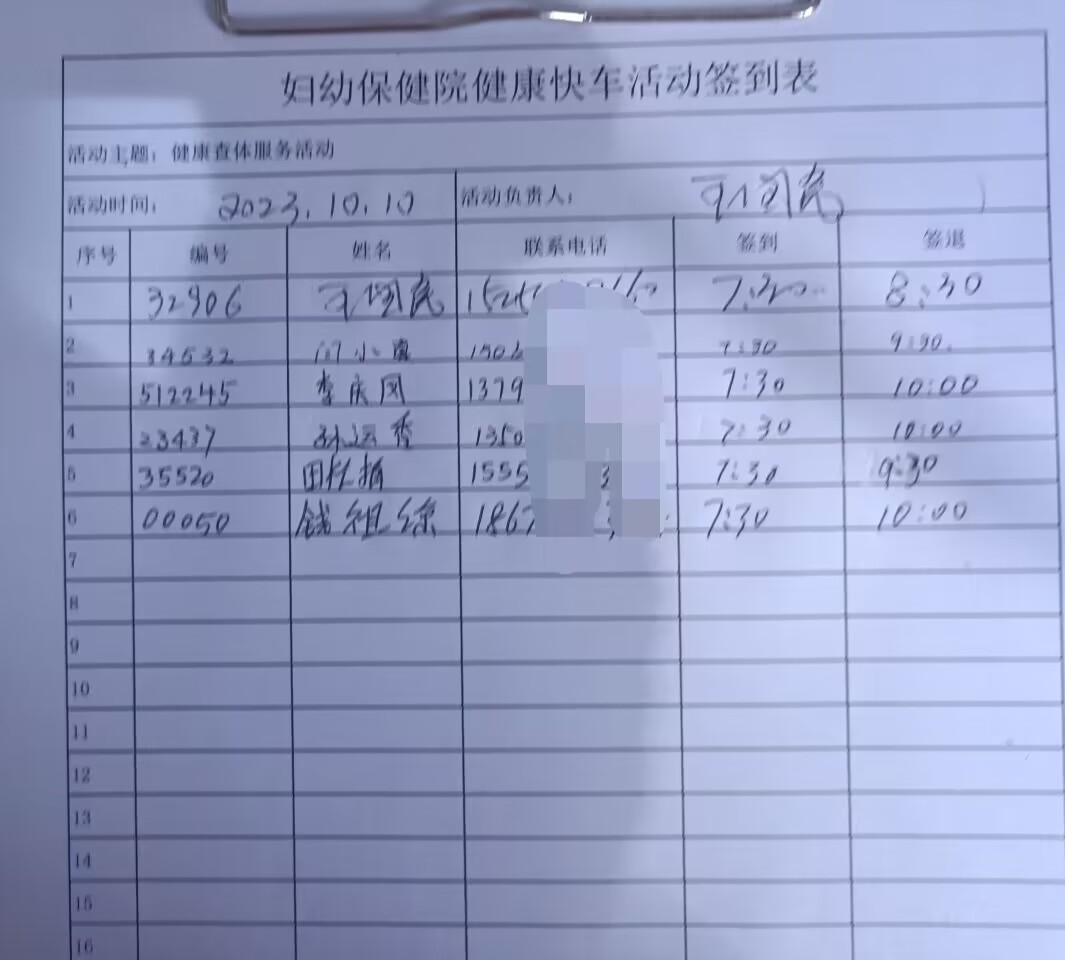 妇幼保健院健康快车活动签到表
活动主题：健康查体服务活动
活动时间： 2023.10.10 活动负责人：
序号 编号 姓名 联系电话 签到 签退
1 32906 7:30 8:30
2 34532 7:30 9:30
3 512245 李庆风 1379 7:30 10:00
4 23437 孙运香 1350 7:30 10:00
5 35520 1555 7:30 9:30
6 00050 钱祖绵 1867 7:30 10:00
7
8
9
10
11
12
13
14
15
16